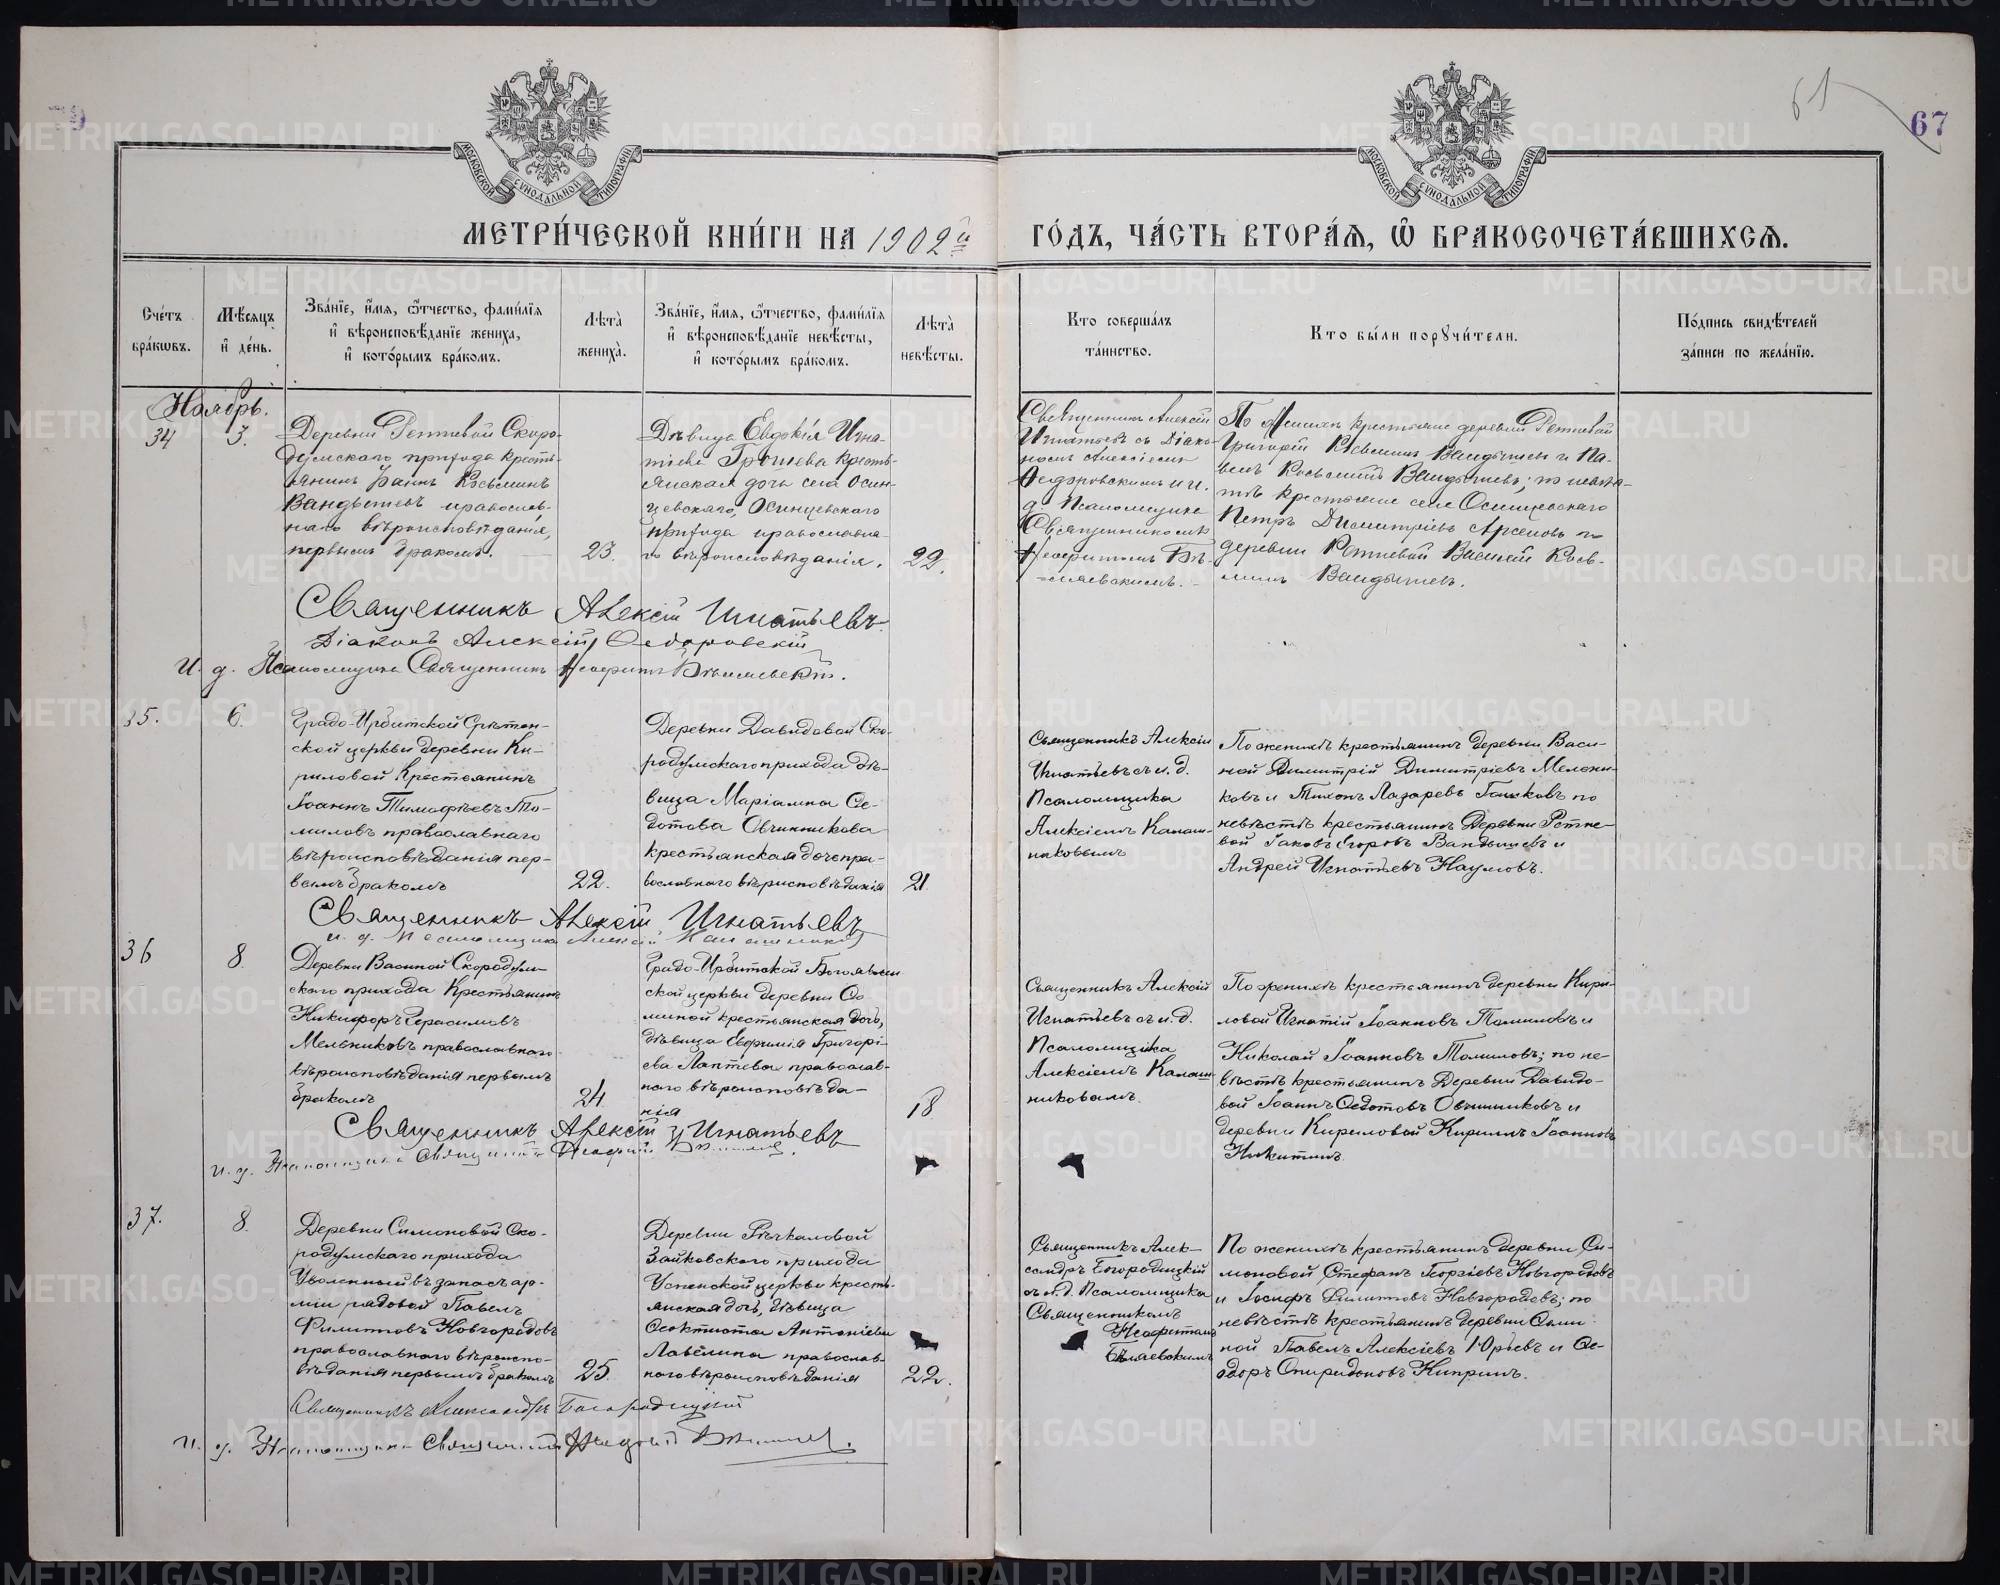 67
МЕТРИ́ЧЕСКОЙ КНИ́ГИ НА 1902й ГО́ДЪ, ЧА́СТЬ ВТОРА́Я, Ѡ БРАКОСОЧЕТА́ВШИХСЯ.
МОСКОВСКОЙ СѴНОДАЛЬНОЙ ТИПОГРАФІИ
МОСКОВСКОЙ СѴНОДАЛЬНОЙ ТИПОГРАФІИ
Сче́тъ бра́кωвъ.
Мѣ́сяцъ и҆ де́нь.
Зва́нїе, и҆́мя, ѻ҆́тчество, фами́лїя
и҆ вѣроисповѣ́данїе жениха̀,
и҆ кото́рымъ бра́комъ.
Лѣта̀ жениха̀.
Зва́нїе, и҆́мя, ѻ҆́тчество, фами́лїя
и҆ вѣроисповѣ́данїе невѣ́сты,
и҆ кото́рымъ бра́комъ.
Лѣта̀ невѣ́сты.
Кто соверша́лъ
та́инство.
Кто бы́ли порꙋчи́тели.
По́дпись свидѣ́телей
за́писи по жела́нїю.
Ноябрь.
34
3.
Деревни Ретневой Скоро-
думскаго прихода кресть-
янинъ Іоаннъ Косьминъ
Вандышевъ православ-
наго вѣроисповѣданія,
первымъ бракомъ.
23.
Дѣвица Евдокія Игна-
тіева крестъ-
янская дочь села Осин-
цевскаго, Осинцевскаго
прихода православна-
го вѣроисповѣданія.
22.
Священникъ Алексій
Игнатьевъ съ Діако-
номъ Алексіемъ
Ѳедоровскимъ и и.
д. Псаломщика
Священникомъ
Неофитомъ Бѣ-
ляевскимъ.
По женихѣ крестьяне деревни Ретневой
Григорій Вандышевъ и Па-
велъ Косьминъ Вандышевъ; по невѣс-
тѣ крестьяне села Осинцевскаго
Петръ Димитріевъ и
деревни Ретневой Василій Козь-
минъ Вандышевъ.
Священникъ Алексій Игнатьевъ
Діаконъ Алексій Ѳедоровскій
И. д. Псаломщика Священникъ Неофитъ Бѣляевскій.
35.
6.
Градо-Ирбитской Срѣтен-
ской церкви деревни Ки-
риловой Крестьянинъ
Іоаннъ Тимофѣевъ То-
миловъ православнаго
вѣроисповѣданія пер-
вымъ бракомъ
22.
Деревни Давыдовой Ско-
родумскаго прихода дѣ-
вица Маріамна Ѳе-
дотова Овчинникова
крестьянская дочь пра-
вославнаго вѣрисповѣданія
21.
Священникъ Алексій
Игнатьевъ съ и. д.
Псаломщика
Алексіемъ Калаш-
никовымъ
По женихѣ крестьянинъ деревни Васи-
ной Димитрій Димитріевъ Мельни-
ковъ и Тихонъ Лазаревъ по
невѣстѣ крестьянинъ Деревни Ретне-
вой Іаковъ Егоровъ Вандышевъ и
Андрей Игнатьевъ Наумовъ.
Священникъ Алексій Игнатьевъ
и. д. Псаломщика Алексій Калашниковъ
36
8.
Деревни Васиной Скородум-
скаго прихода Крестьянинъ
Никифоръ Герасимовъ
Мельниковъ православнаго
вѣроисповѣданія первымъ
бракомъ
24
Градо-Ирбитской Богоявлен
ской церкви деревни Ѳо-
миной крестьянская дочь,
дѣвица Евфимія Григорі-
ева Лаптева православ-
наго вѣроисповѣда-
нія
18
Священникъ Алексій
Игнатьевъ съ и. д.
Псаломщика
Алексіемъ Калаш-
никовымъ.
По женихѣ крестьянинъ деревни Кири-
ловой Игнатій Іоанновъ Томиловъ и
Николай Іоанновъ Томиловъ; по не-
вѣстѣ крестьянинъ Деревни Давыдо-
вой Іоаннъ Ѳедотовъ Овчинниковъ и
деревни Кириловой Кириллъ Іоанновъ
Никитинъ.
Священникъ Алексій Игнатьевъ
и. д. Псаломщика Священникъ
37.
8.
Деревни Симоновой Ско-
родумскаго прихода
Уволенный въ запасъ ар-
міи рядовой Павелъ
Филипповъ Новгородовъ
православнаго вѣроиспо-
вѣданія первымъ бракомъ
25.
Деревни Рѣчкаловой
Зайковскаго прихода
Успенской церкви кресть-
янская дочь, дѣвица
Ѳеоктиста Антоніева
Лавелина православ-
наго вѣроисповѣданія
22.
Священникъ Алек-
сандръ Богородицкій
съ и. д. Псаломщика
Священникомъ
Неофитомъ
Бѣляевскимъ
По женихѣ крестьянинъ деревни Си-
моновой Стефанъ Георгіевъ Новгородовъ
и Іосифъ Филипповъ Новгородовъ; по
невѣстѣ крестьянинъ деревни
ной Павелъ Алексіевъ Юрьевъ и Ѳе-
одоръ Спиридоновъ Кипринъ.
Священникъ Александръ Богородицкій
И. д. Псаломщика Священникъ
METRIKI.GASO-URAL.RU